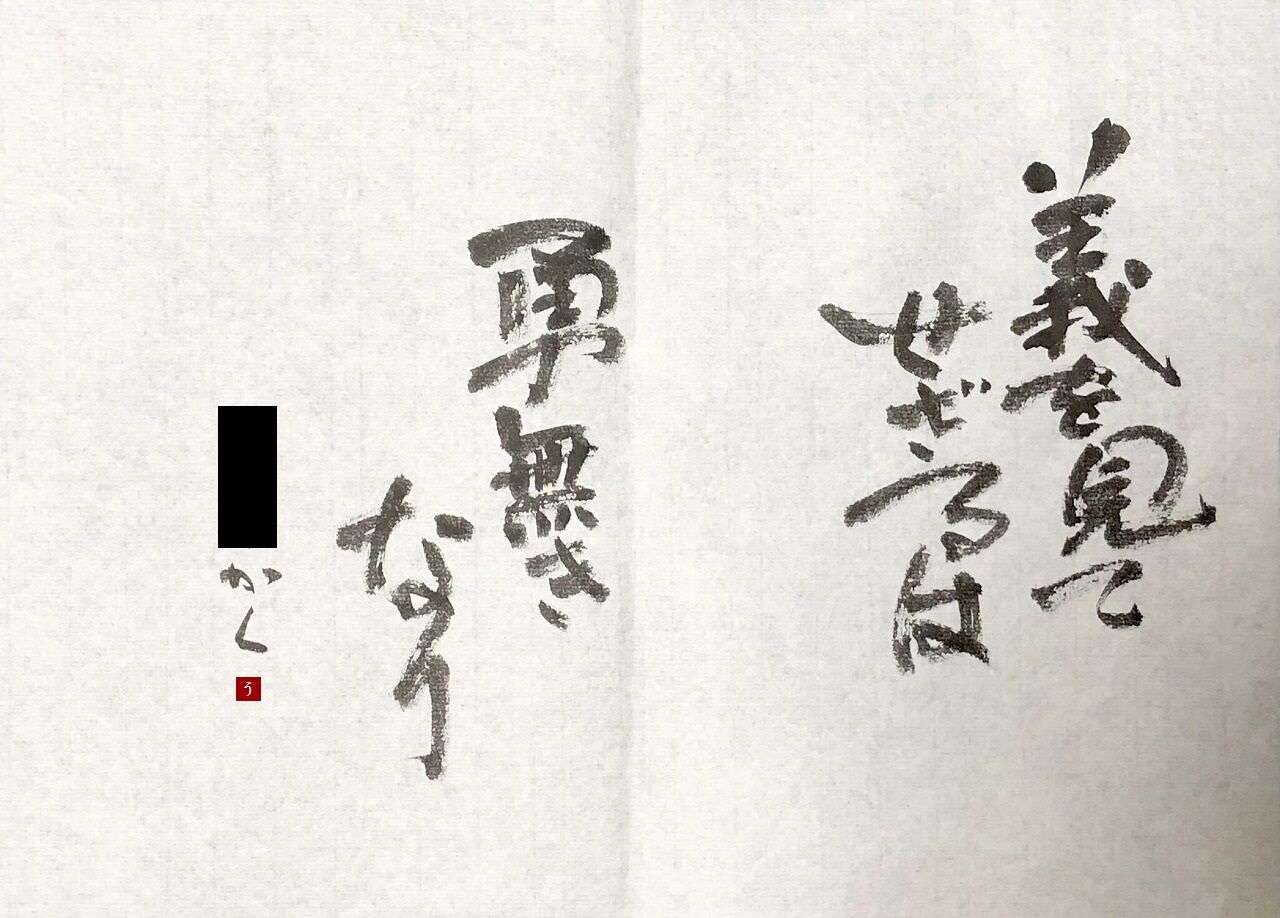 義を見て
せざるは
勇無き
なり
かく
う